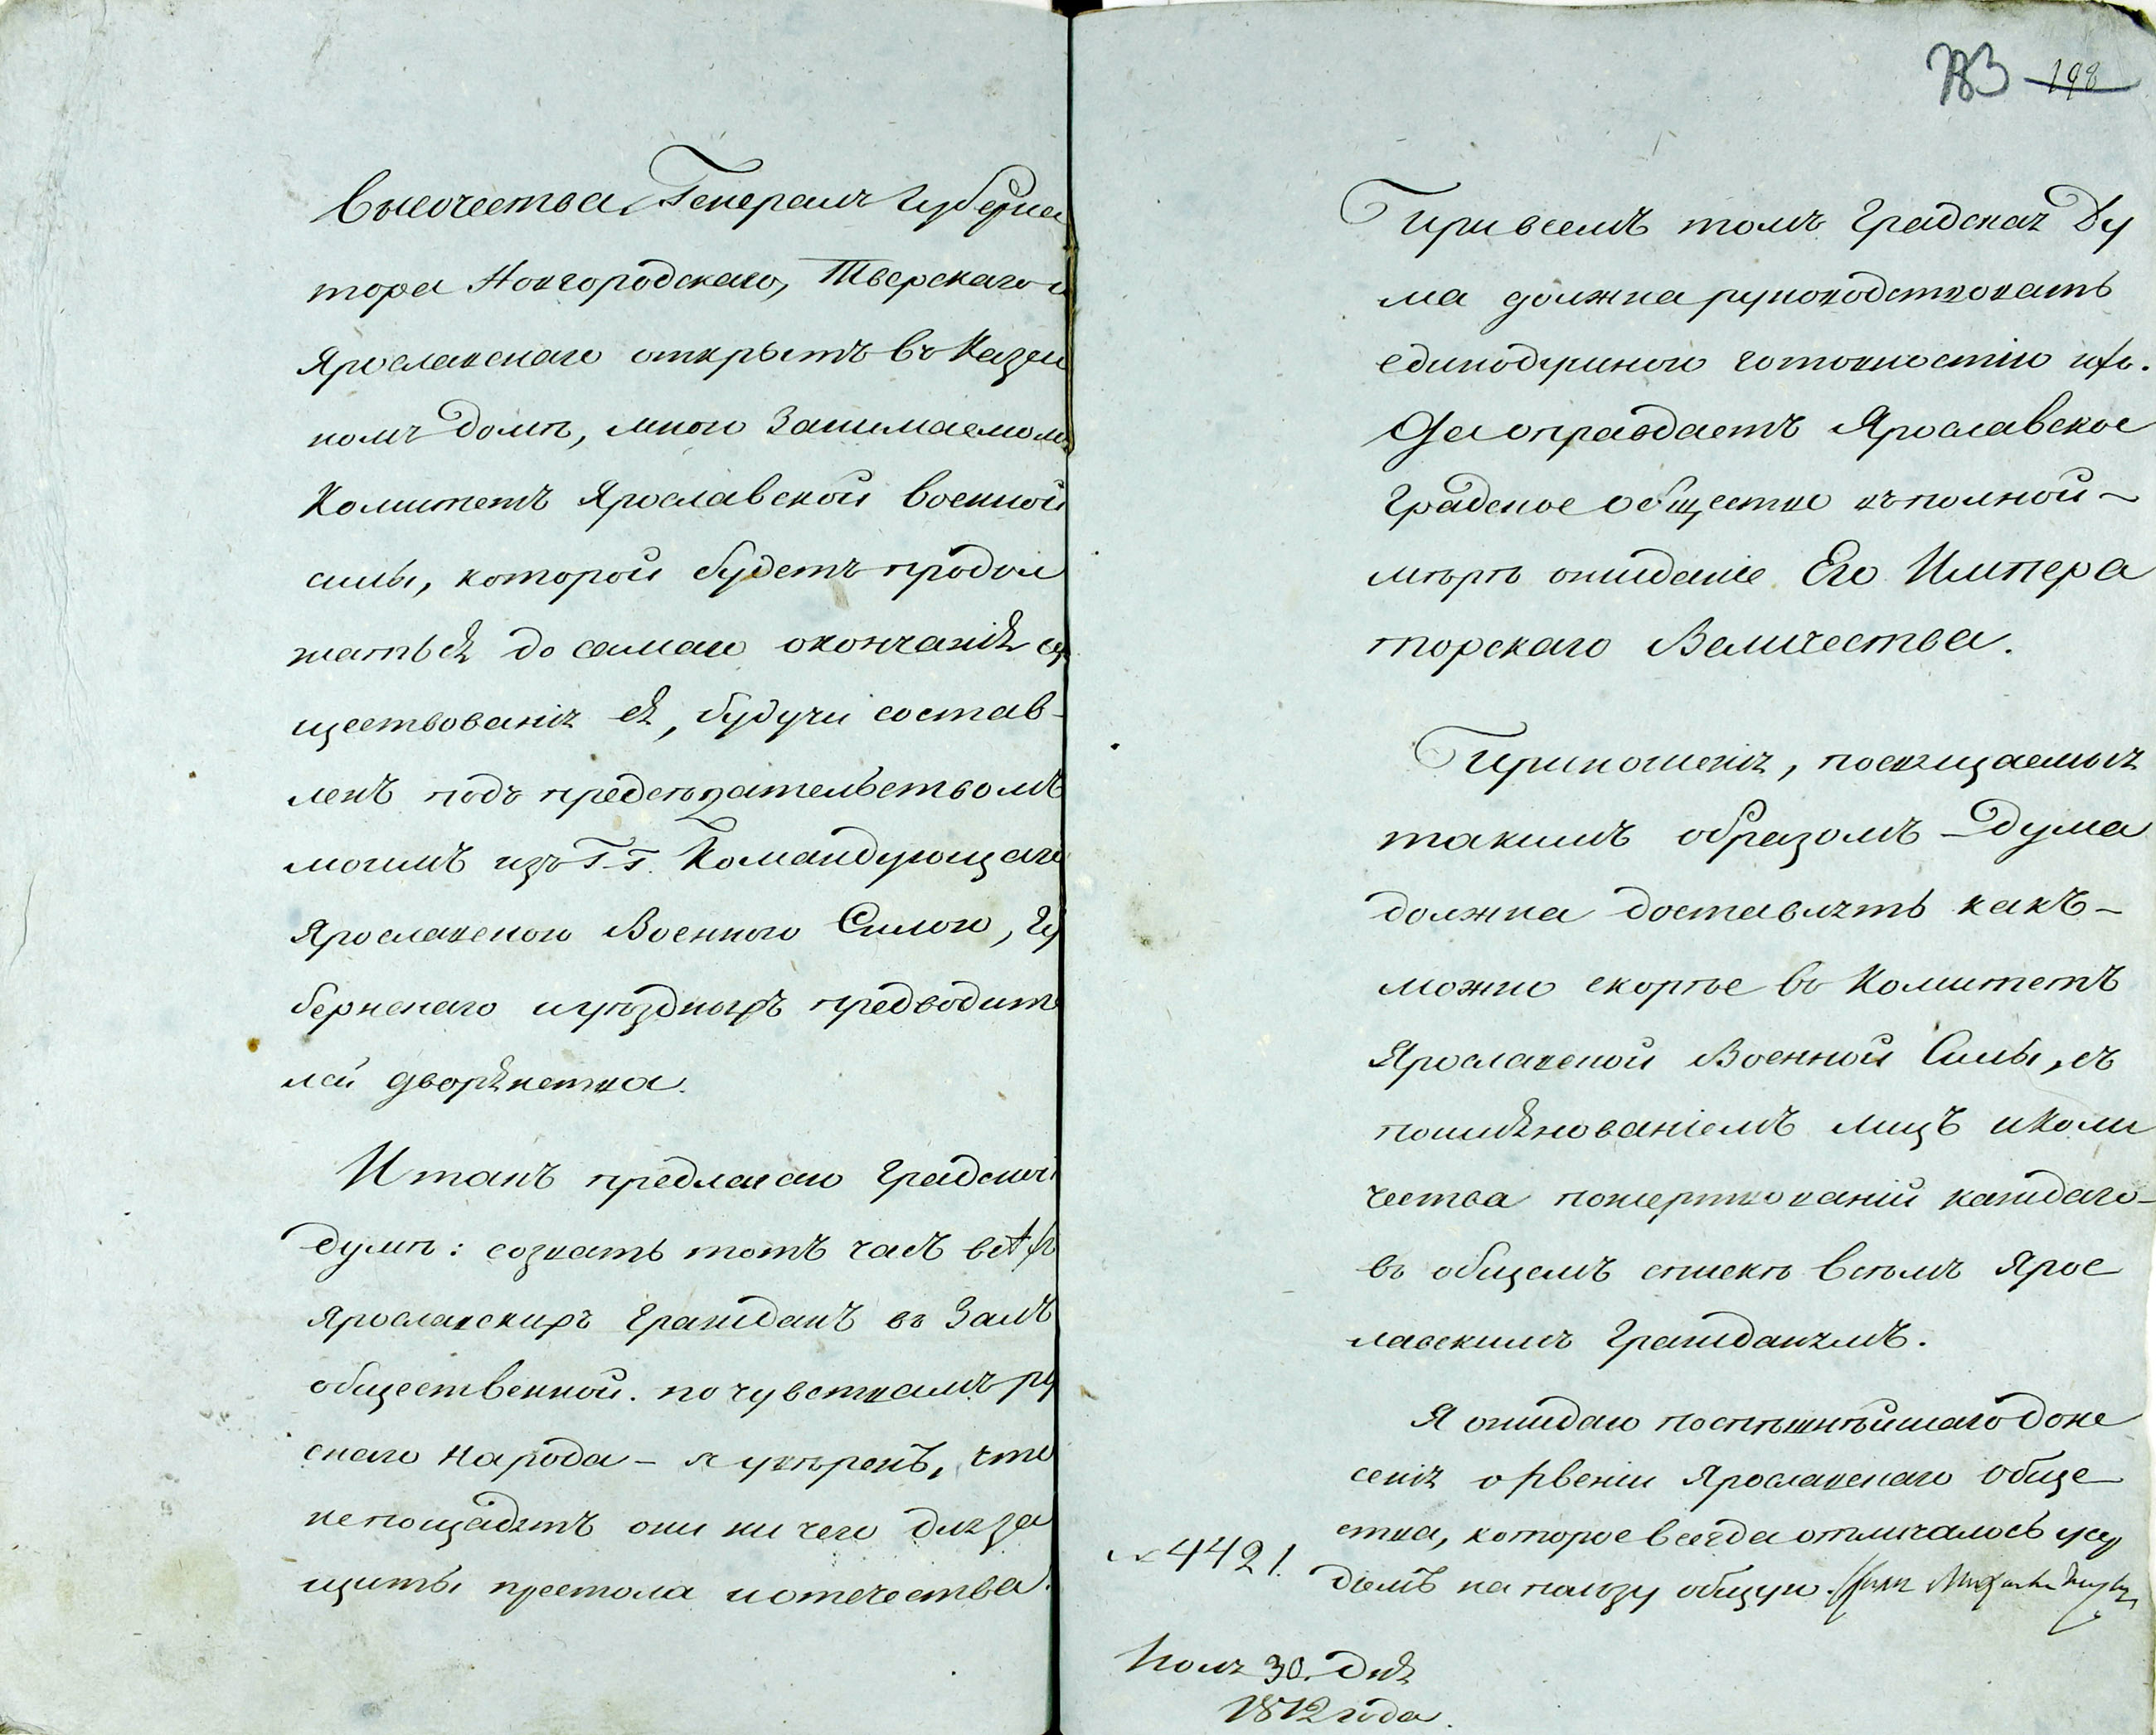 Высочества, Генералъ Губерна
тора Новгородскаго, Тверскаго и
Ярославскаго открытъ въ казен
номъ домѣ, мною занимаемомъ
Комитетъ Ярославской военной
силы, которой будетъ продол
жаться до самаго окончанія су
ществованія ея, будучи состав-
ленъ подъ предсѣдательствомъ
моимъ изъ Г.г. Командующаго
Ярославскою Военною Силою, Гу
бернскаго и уѣздныхъ предводите
лей дворянства.
И такъ предлагаю градской
думѣ: созвать тотъ часъ всѣхъ
Ярославскихъ гражданъ въ Залъ
общественной. по чувствамъ ру
скаго народа – я увѣренъ, что
непощадятъ они ни чего для за
щиты престола и отечества.
783 198
При всемъ томъ градская Ду
ма должна руководствовать
единодушною готовностію ихъ.
Да оправдаетъ Ярославское
градское общество въ полной –
мѣрѣ ожиданіе Его Импера
торскаго Величества.
Приношенія, посвящаемыя
такимъ образомъ Дума
должна доставлять какъ –
можно скорѣе въ Комитетъ
Ярославской Военной Силы, съ
поимянованіемъ лицъ и коли
чества пожертвованій каждаго –
въ общемъ спискѣ всѣмъ Ярос
лавскимъ гражданамъ.
Я ожидаю поспѣшнѣйшаго доне
сенія о рвеніи Ярославскаго обще
ства, которое всегда отличалось усер
діемъ на пользу общую.
№ 4421.
Іюля 30. дня
1812 года.